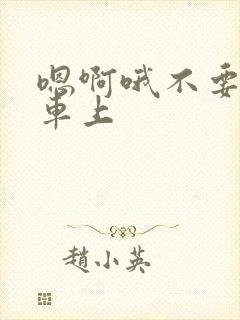 嗯啊哦不要
車上
趙小英